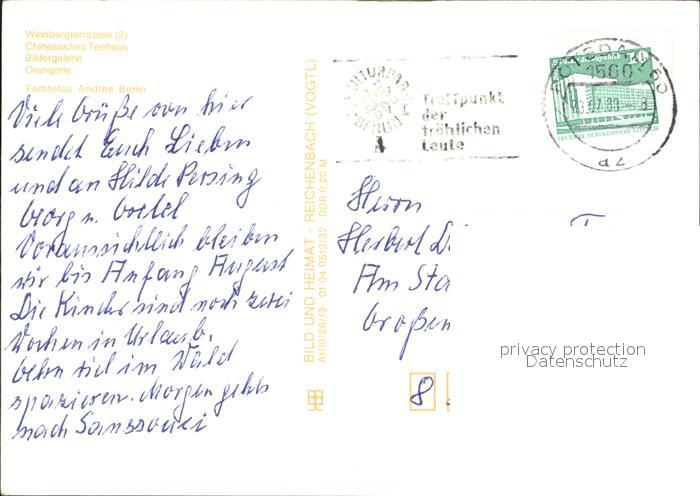 Weinbergterrassen (2)
Chinesisches Teehaus
Bildergalerie
Orangerie
Farbfotos Andree, Berlin
Viele Grüße von hier
sendet Euch Lieben
und an Hilde Persing
Georg u. Gretel
Voraussichtlich bleiben
wir bis Anfang August
Die Kinder sind noch zwei
Wochen in Urlaub.
Gehn viel im Wald
spazieren. Morgen gehts
nach Sanssouci
BILD UND HEIMAT · REICHENBACH (VOGTL)
A1/III/26/13 01 04 0513/32 DDR 0,20 M
KULTURPARK
BERLIN
Treffpunkt
der
fröhlichen
Leute
POTSDAM
1560
az
DEUTSCHE DEMOKRATISCHE REPUBLIK
Herrn
Herbert
Am
Großen
8
privacy protection
Datenschutz